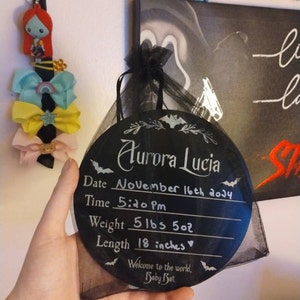 Aurora Lucia
Date November 16th 2024
Time 5:20 pm
Weight 5 lbs 5oz
Length 18 inches ♥
Welcome to the world,
Baby Bat